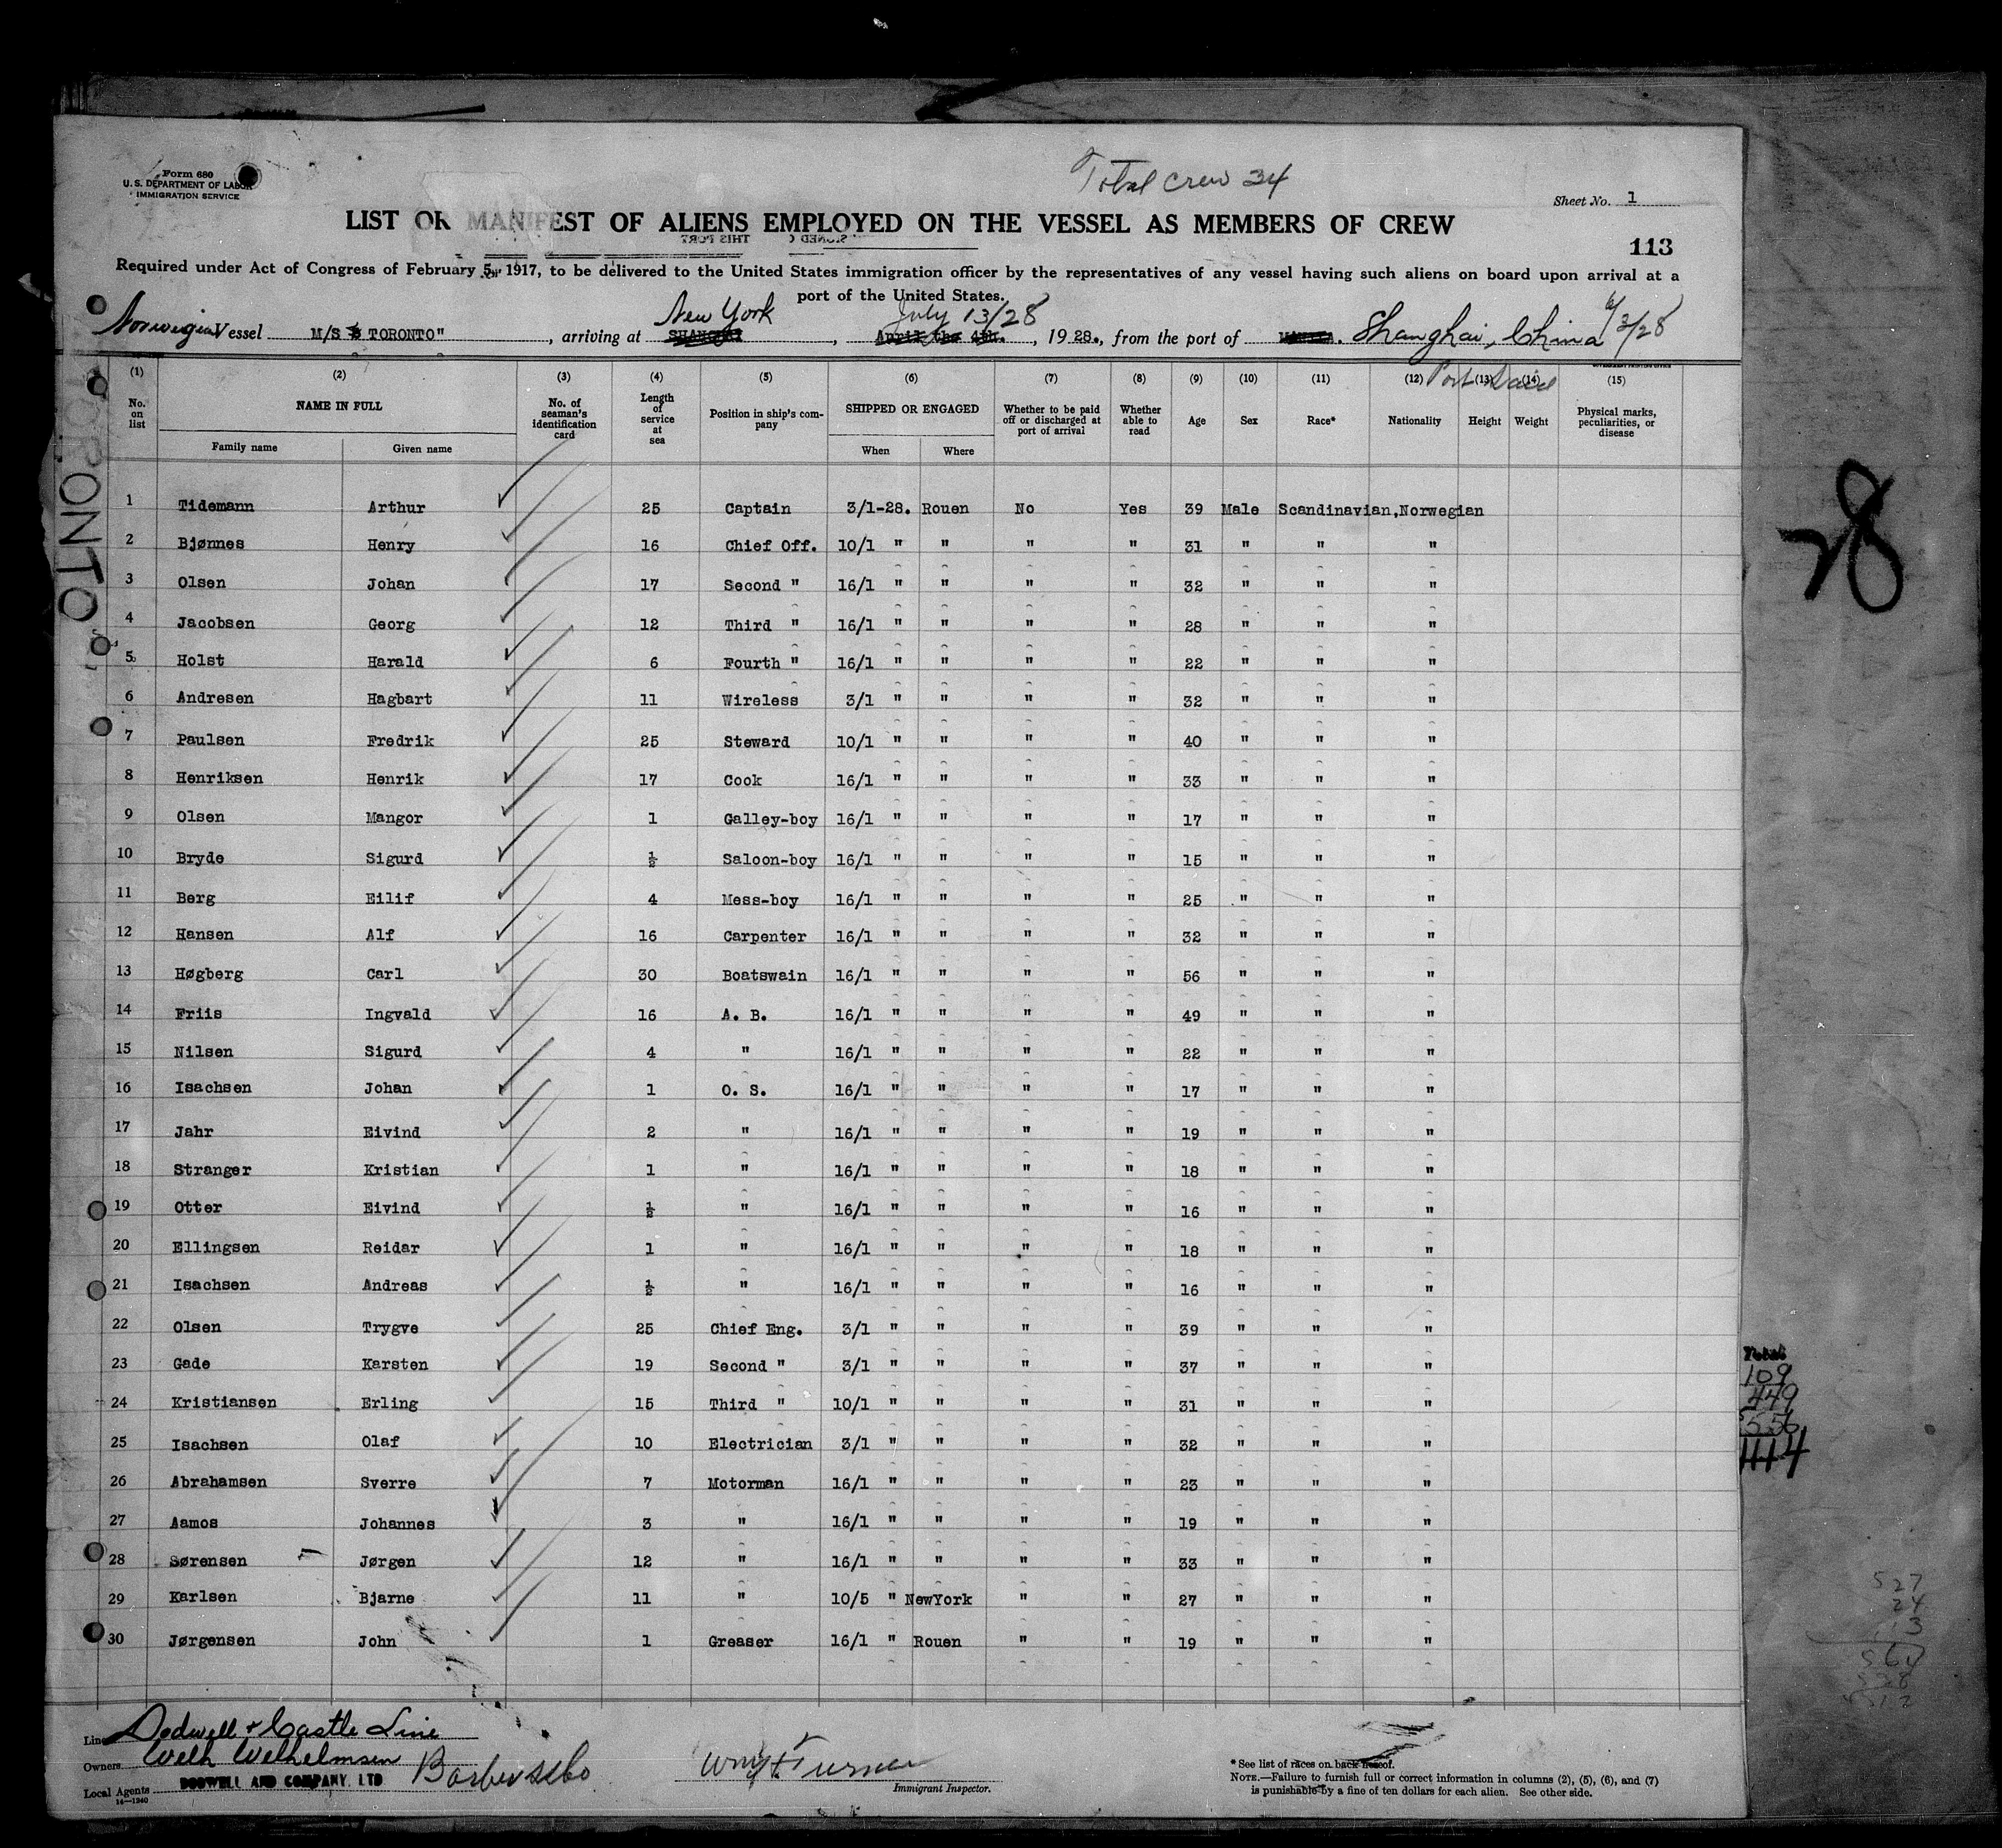 Form 680
U. S. DEPARTMENT OF LABOR
IMMIGRATION SERVICE
Total Crew 34
Sheet No. 1
LIST OR MANIFEST OF ALIENS EMPLOYED ON THE VESSEL AS MEMBERS OF CREW
THIS PORT
113
Required under Act of Congress of February 5, 1917, to be delivered to the United States immigration officer by the representatives of any vessel having such aliens on board upon arrival at a
port of the United States.
Norwegian Vessel M/S TORONTO" , arriving at SHANGHAI New York , April the 4th. July 13/28 , 19 28., from the port of Shanghai, China 6/3/28
(1) (2) (3) (4) (5) (6) (7) (8) (9) (10) (11) (12) (13) (14) (15)
No. on list NAME IN FULL Family name Given name No. of seaman's identification card Length of service at sea Position in ship's company SHIPPED OR ENGAGED When Where Whether to be paid off or discharged at port of arrival Whether able to read Age Sex Race* Nationality Height Weight Physical marks, peculiarities, or disease
1 Tidemann Arthur 25 Captain 3/1-28. Rouen No Yes 39 Male Scandinavian, Norwegian
2 Bjønnes Henry 16 Chief Off. 10/1 " " " " 31 " " "
3 Olsen Johan 17 Second " 16/1 " " " " 32 " " "
4 Jacobsen Georg 12 Third " 16/1 " " " " 28 " " "
5 Holst Harald 6 Fourth " 16/1 " " " " 22 " " "
6 Andresen Hagbart 11 Wireless 3/1 " " " " 32 " " "
7 Paulsen Fredrik 25 Steward 10/1 " " " " 40 " " "
8 Henriksen Henrik 17 Cook 16/1 " " " " 33 " " "
9 Olsen Mangor 1 Galley-boy 16/1 " " " " 17 " " "
10 Bryde Sigurd ½ Saloon-boy 16/1 " " " " 15 " " "
11 Berg Eilif 4 Mess-boy 16/1 " " " " 25 " " "
12 Hansen Alf 16 Carpenter 16/1 " " " " 32 " " "
13 Høgberg Carl 30 Boatswain 16/1 " " " " 56 " " "
14 Friis Ingvald 16 A. B. 16/1 " " " " 49 " " "
15 Nilsen Sigurd 4 " 16/1 " " " " 22 " " "
16 Isachsen Johan 1 O. S. 16/1 " " " " 17 " " "
17 Jahr Eivind 2 " 16/1 " " " " 19 " " "
18 Stranger Kristian 1 " 16/1 " " " " 18 " " "
19 Otter Eivind ½ " 16/1 " " " " 16 " " "
20 Ellingsen Reidar 1 " 16/1 " " " " 18 " " "
21 Isachsen Andreas ½ " 16/1 " " " " 16 " " "
22 Olsen Trygve 25 Chief Eng. 3/1 " " " " 39 " " "
23 Gade Karsten 19 Second " 3/1 " " " " 37 " " "
24 Kristiansen Erling 15 Third " 10/1 " " " " 31 " " "
25 Isachsen Olaf 10 Electrician 3/1 " " " " 32 " " "
26 Abrahamsen Sverre 7 Motorman 16/1 " " " " 23 " " "
27 Aamos Johannes 3 " 16/1 " " " " 19 " " "
28 Sørensen Jørgen 12 " 16/1 " " " " 33 " " "
29 Karlsen Bjarne 11 " 10/5 " NewYork " " 27 " " "
30 Jørgensen John 1 Greaser 16/1 " Rouen " " 19 " " "
TORONTO
28
Total
109
449
556
1114
527
24
13
564
Line Dodwell + Castle Line
Owners Wilh Wilhelmsen
Local Agents DODWELL AND COMPANY. LTD Barber SS Co
14—1240
Wm H Turner
Immigrant Inspector.
* See list of races on back hereof.
NOTE.—Failure to furnish full or correct information in columns (2), (5), (6), and (7)
is punishable by a fine of ten dollars for each alien. See other side.